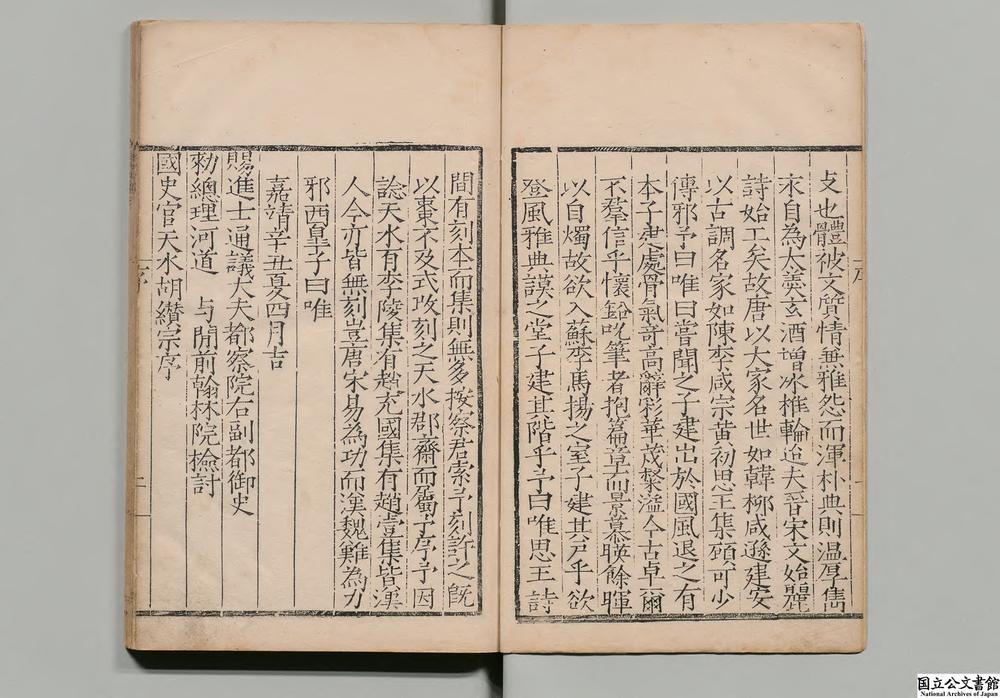 文也體被文質情無雅怨而渾朴典則温厚雋
永自為大羹玄酒增冰椎輪迨夫晉宋文始麗
詩始工矣故唐以大家名世如韓柳咸遜建安
以古調名家如陳李咸宗黄初思王集顧可少
傳邪予曰唯曰嘗聞之子建出於國風退之有
本子建處骨氣奇高辭彩華茂粲溢今古卓爾
不羣信乎懷鉛吮筆者抱篇章而景慕暎餘暉
以自燭故欲入蘇李馬揚之室子建其戸乎欲
登風雅典謨之堂子建其階乎予曰唯思王詩
序
間有刻本而集則無多按察君索予刻許之既
以棗不及式改刻之天水郡齋而屬予序予因
諗天水有李陵集有趙充國集有趙壹集皆漢
人今亦皆無刻豈唐宋易為功而漢魏難為力
邪西臯子曰唯
嘉靖辛丑夏四月吉
賜進士通議大夫都察院右副都御史
勑總理河道 与閒前翰林院檢討
國史官天水胡纘宗序
序
二
国立公文書館
National Archives of Japan